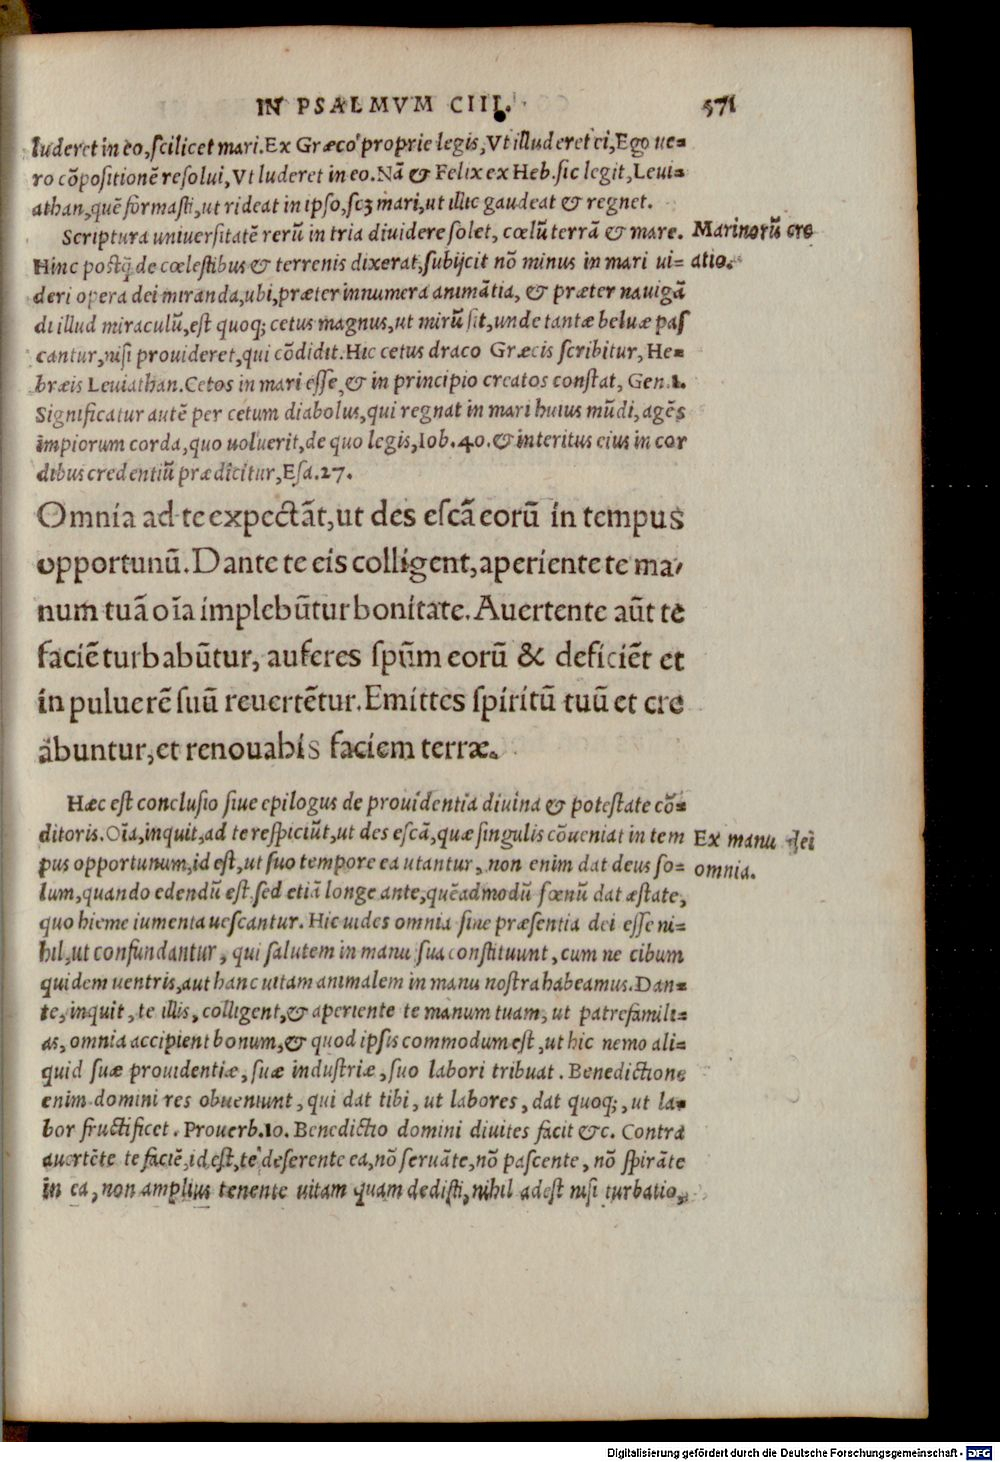 IN PSALMVM CIII. 571
luderet in eo, scilicet mari. Ex Græco proprie legis, Vt illuderet ei, Ego ue=
ro cõpositionẽ resolui, Vt luderet in eo. Nã & Felix ex Heb. sic legit, Leui=
athan, quẽ formasti, ut rideat in ipso, scꝫ mari, ut illic gaudeat & regnet.
Scriptura uniuersitatẽ rerũ in tria diuidere solet, cœlũ terrã & mare.
Marinorũ cre
Hinc postq̃ de cœlestibus & terrenis dixerat, subijcit nõ minus in mari ui=
atio.
deri opera dei miranda, ubi, præter innumera animãtia, & præter nauigã
di illud miraculũ, est quoq; cetus magnus, ut mirũ sit, unde tantæ beluæ pas
cantur, nisi prouideret, qui cõdidit. Hic cetus draco Græcis scribitur, He=
bræis Leuiathan. Cetos in mari esse, & in principio creatos constat, Gen. 1.
Significatur autẽ per cetum diabolus, qui regnat in mari huius mũdi, agẽs
impiorum corda, quo uoluerit, de quo legis, Iob. 40. & interitus eius in cor
dibus credentiũ prædicitur, Esa. 27.
Omnia ad te expectãt, ut des escã eorũ in tempus
opportunũ. Dante te eis colligent, aperiente te ma-
num tuã oĩa implebũtur bonitate. Auertente aũt te
faciẽ turbabũtur, auferes spũm eorũ & deficiẽt et
in puluerẽ suũ reuertẽtur. Emittes spiritũ tuũ et cre
abuntur, et renouabis faciem terræ.
Hæc est conclusio siue epilogus de prouidentia diuina & potestate cõ=
ditoris. Oĩa, inquit, ad te respiciũt, ut des escã, quæ singulis cõueniat in tem
Ex manu dei
pus opportunum, id est, ut suo tempore ea utantur, non enim dat deus so=
omnia.
lum, quando edendũ est, sed etiã longe ante, quẽadmodũ fœnũ dat æstate,
quo hieme iumenta uescantur. Hic uides omnia sine præsentia dei esse ni=
hil, ut confundantur, qui salutem in manu sua constituunt, cum ne cibum
quidem uentris, aut hanc uitam animalem in manu nostra habeamus. Dan=
te, inquit, te illis, colligent, & aperiente te manum tuam, ut patrefamili=
as, omnia accipient bonum, & quod ipsis commodum est, ut hic nemo ali=
quid suæ prouidentiæ, suæ industriæ, suo labori tribuat. Benedictione
enim domini res obueniunt, qui dat tibi, ut labores, dat quoq;, ut la=
bor fructificet. Prouerb. 10. Benedictio domini diuites facit &c. Contra
auertẽte te faciẽ, id est, te deserente ea, nõ seruãte, nõ pascente, nõ spirãte
in ea, non amplius tenente uitam quam dedisti, nihil adest nisi turbatio,
Digitalisierung gefördert durch die Deutsche Forschungsgemeinschaft - DFG